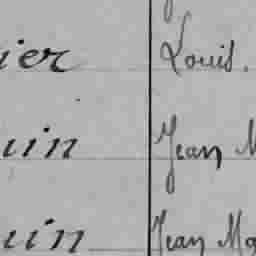 ier Louis.
uin Jean M
uin Jean Ma